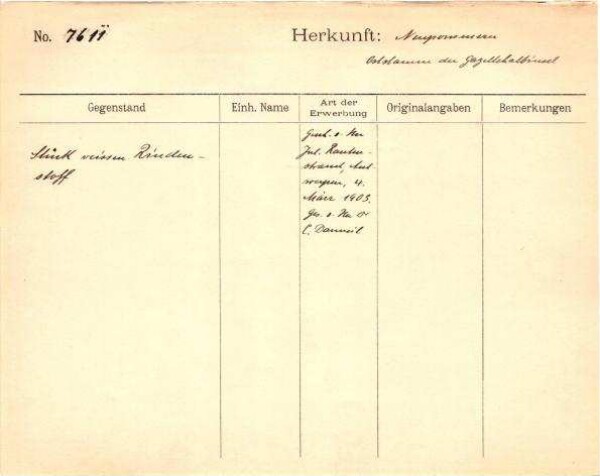 No. 7611
Herkunft: Neupommern
Oststamm der Gazellehalbinsel
Gegenstand
Einh. Name
Art der
Erwerbung
Originalangaben
Bemerkungen
Stück weissen Rinden-
stoff
Gesch. v. Hrn
Jul. Rauten-
strauch, Ant-
werpen, 4.
März 1903.
Ges. v. Hrn Dr
C. Danneil